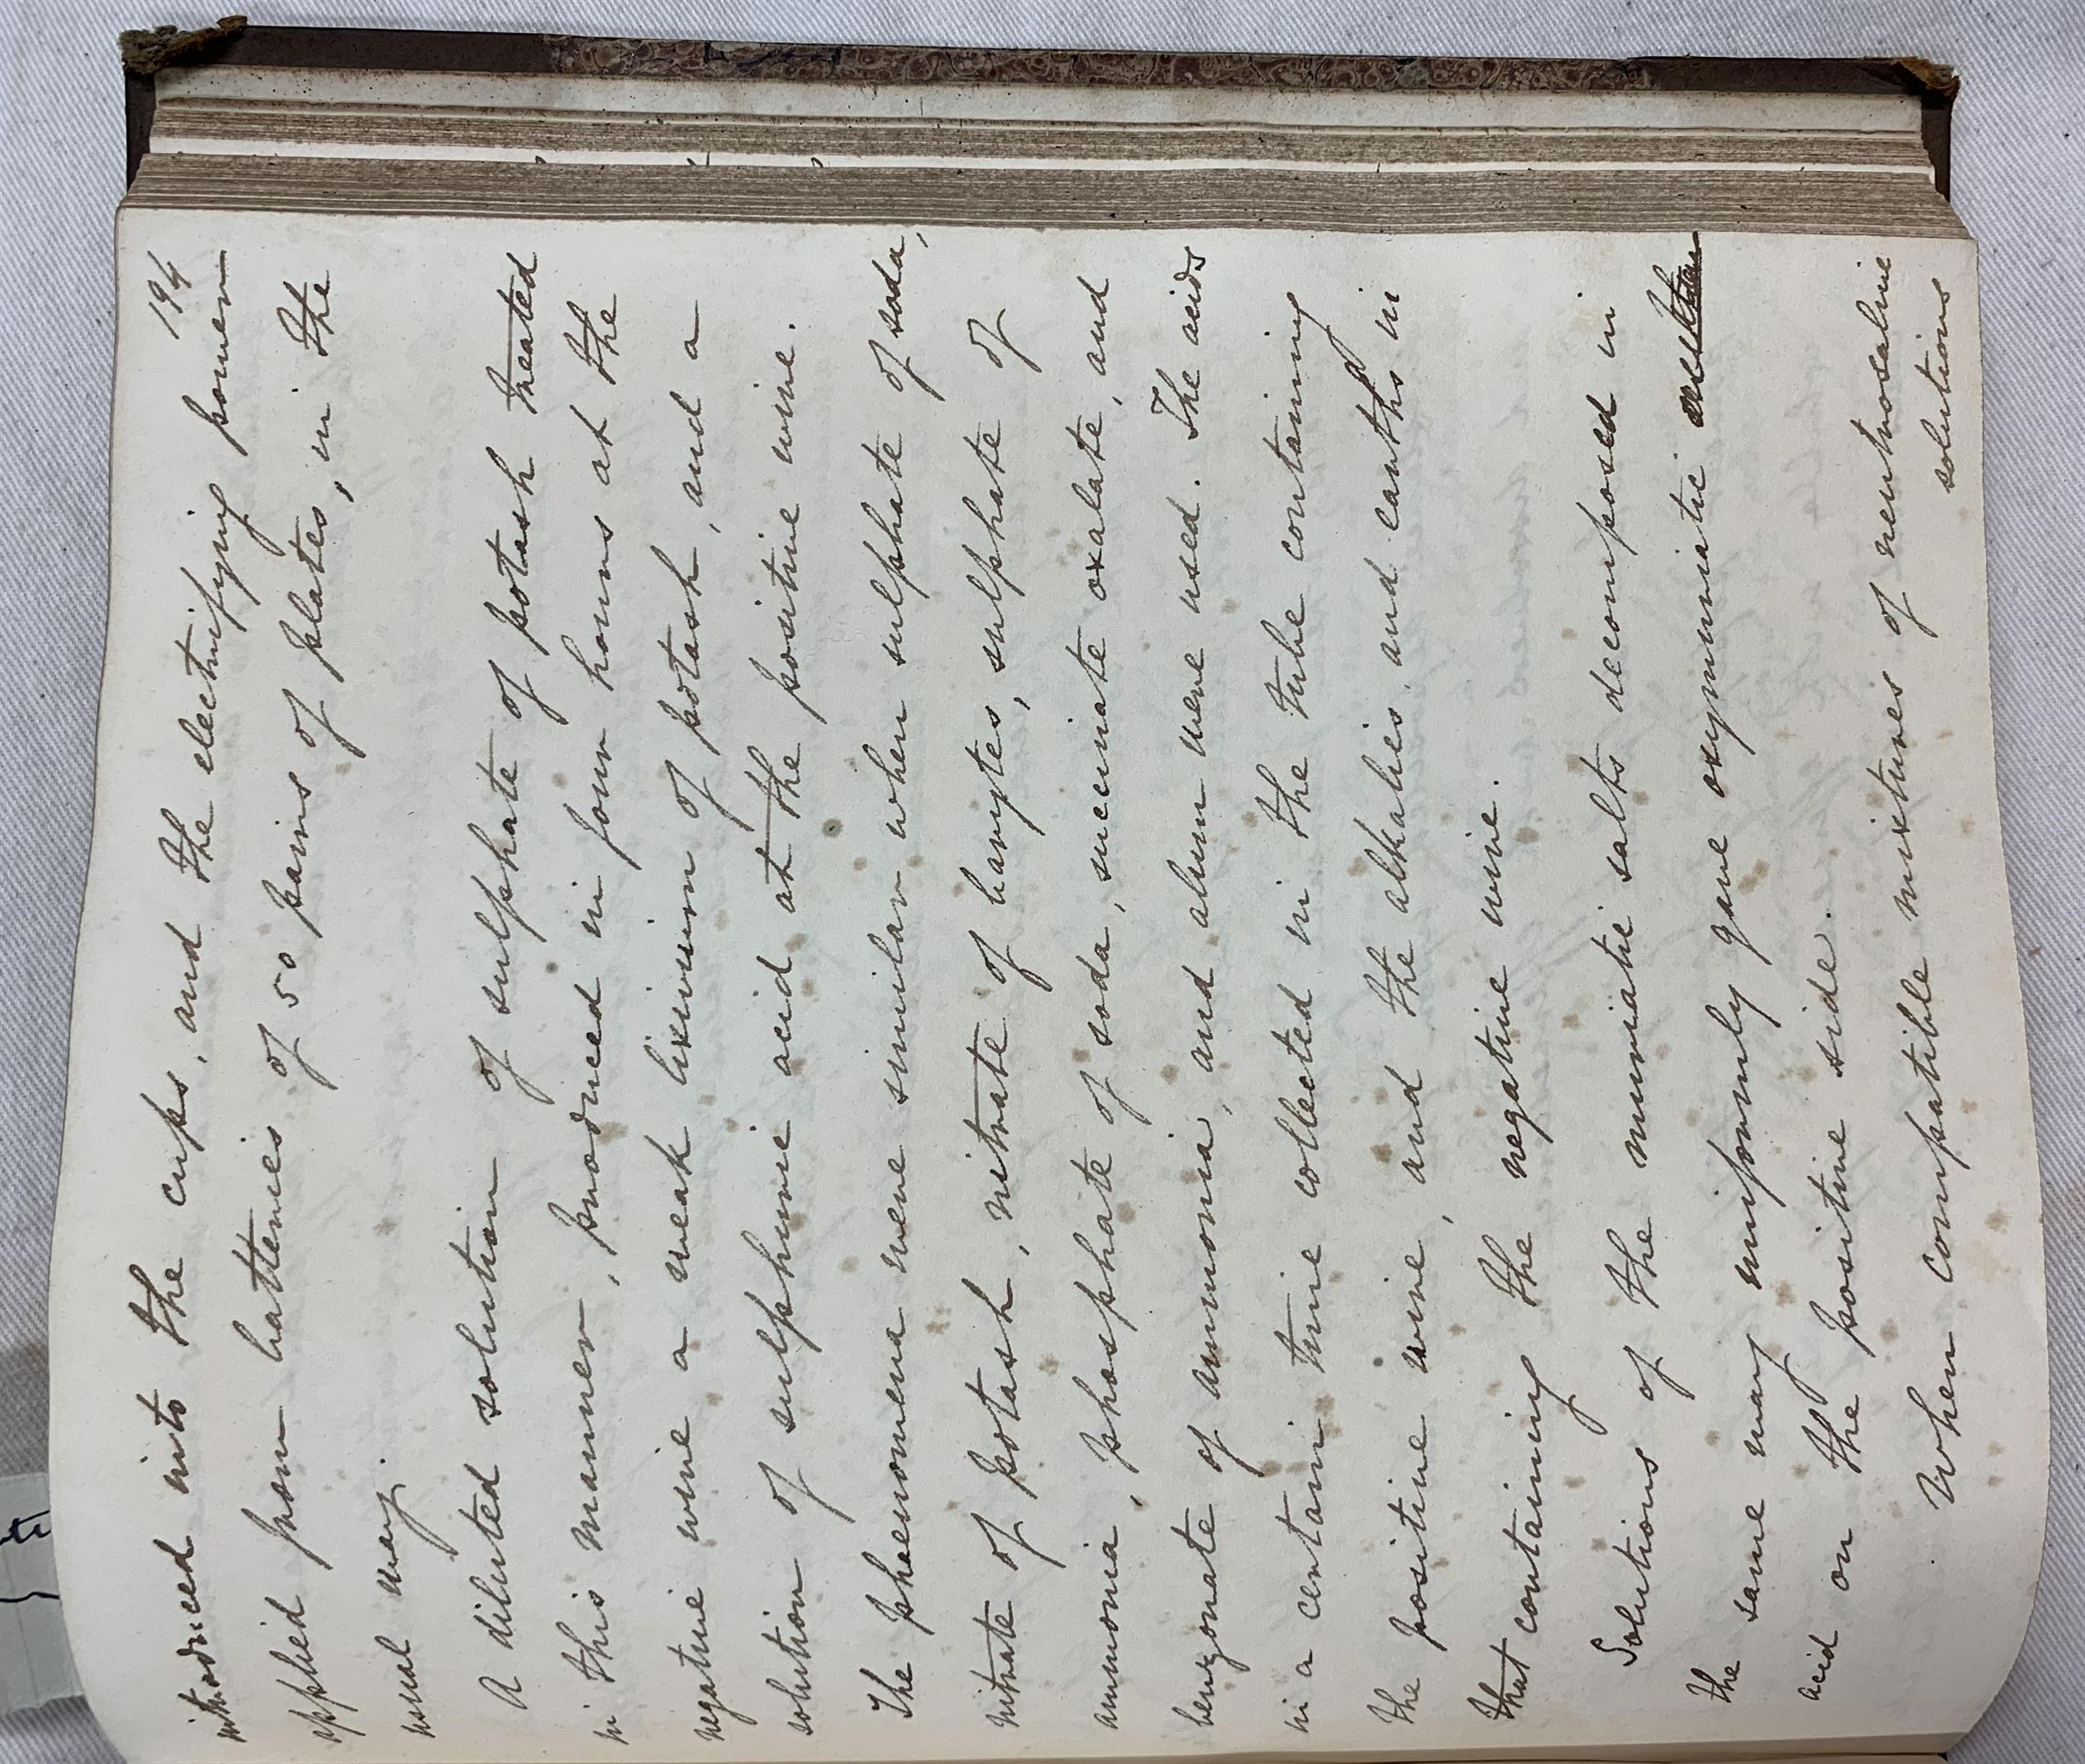 194
introduced into the cups, and the electrifying power
applied from batteries of 50 pairs of plates, in the
usual way.
A diluted solution of sulphate of potash treated
in this manner, produced in four hours at the
negative wire a weak lixivium of potash, and a
solution of sulphuric acid at the positive wire.
The phaenomena were similar when sulphate of soda,
nitrate of potash, nitrate of barytes, sulphate of
ammonia, phosphate of soda, succinate oxalate, and
benzonate of ammonia, and alum were used. The acids
in a certain time collected in the tube containing
the positive wire, and the alkalies and earths in
that containing the negative wire.
Solutions of the muriatic salts decomposed in
the same way uniformly gave oxymuriatic
acid on the positive side.
When compatible mixtures of neutrosaline
solutions